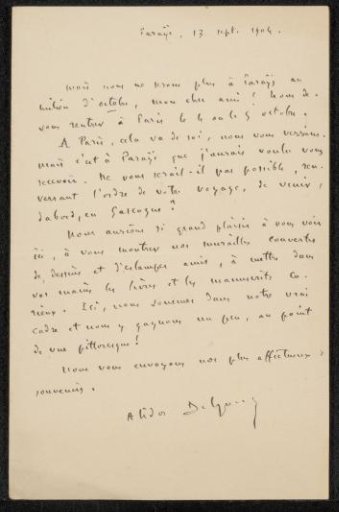 Parays, 13 sept. 1904.
mais nous ne serons plus à Parays au
milieu d'octobre, mon cher ami ! Nous de-
vons rentrer à Paris le 4 ou le 5 octobre.
A Paris, cela va de soi, nous vous verrons.
mais c'est à Parays que j'aurais voulu vous
recevoir. Ne vous serait-il pas possible, ren-
versant l'ordre de votre voyage, de venir,
d'abord, en Gascogne ?
Nous aurions si grand plaisir à vous voir
ici, à vous montrer nos murailles couvertes
de dessins et d'estampes amis, à mettre dans
vos mains les livres et les manuscrits cu-
rieux. Ici, nous sommes dans notre vrai
cadre et nous y gagnons un peu, au point
de vue pittoresque !
Nous vous envoyons nos plus affectueux
souvenirs.
Alidor Delzant